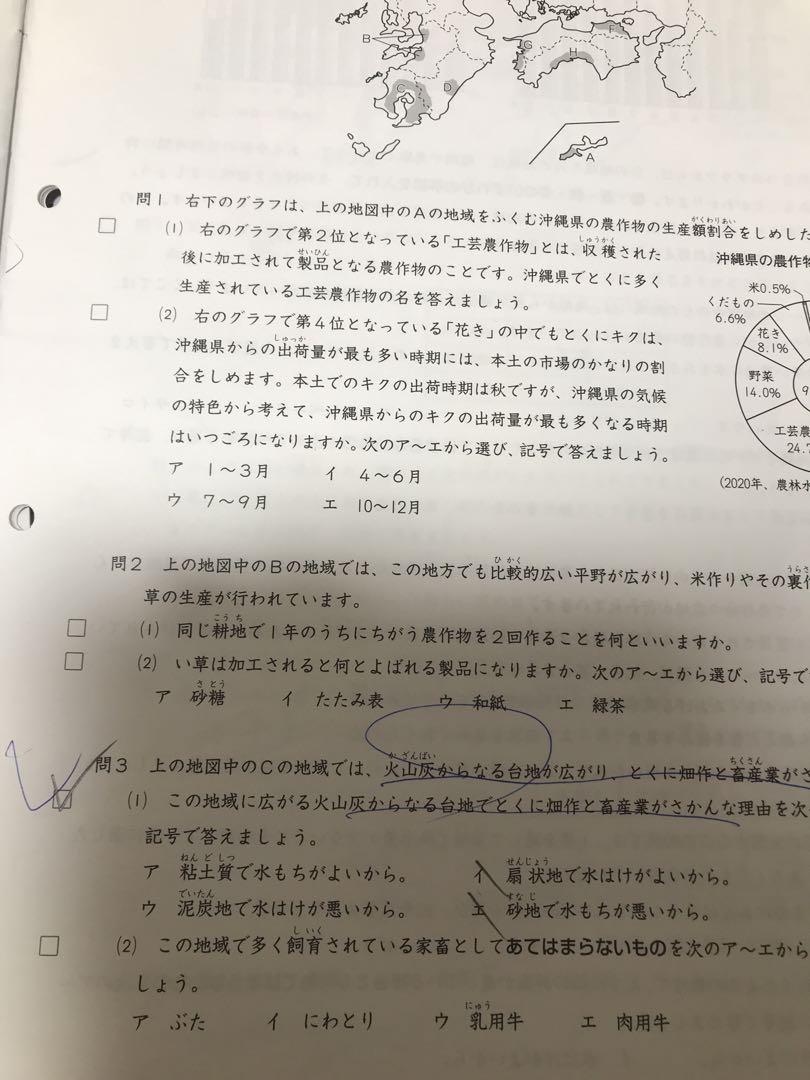 B
C
D
G
H
F
A
問1 右下のグラフは、上の地図中のAの地域をふくむ沖縄県の農作物の生産額割合をしめした
(1) 右のグラフで第2位となっている「工芸農作物」とは、収穫された
後に加工されて製品となる農作物のことです。沖縄県でとくに多く
生産されている工芸農作物の名を答えましょう。
(2) 右のグラフで第4位となっている「花き」の中でもとくにキクは、
沖縄県からの出荷量が最も多い時期には、本土の市場のかなりの割
合をしめます。本土でのキクの出荷時期は秋ですが、沖縄県の気候
の特色から考えて、沖縄県からのキクの出荷量が最も多くなる時期
はいつごろになりますか。次のア〜エから選び、記号で答えましょう。
ア 1〜3月 イ 4〜6月
ウ 7〜9月 エ 10〜12月
沖縄県の農作物
米0.5%
くだもの
6.6%
花き
8.1%
野菜
14.0%
工芸農
24.7
(2020年、農林水
問2 上の地図中のBの地域では、この地方でも比較的広い平野が広がり、米作りやその裏作
草の生産が行われています。
(1) 同じ耕地で1年のうちにちがう農作物を2回作ることを何といいますか。
(2) い草は加工されると何とよばれる製品になりますか。次のア〜エから選び、記号で
ア 砂糖 イ たたみ表 ウ 和紙 エ 緑茶
問3 上の地図中のCの地域では、火山灰からなる台地が広がり、とくに畑作と畜産業がさ
(1) この地域に広がる火山灰からなる台地でとくに畑作と畜産業がさかんな理由を次
記号で答えましょう。
ア 粘土質で水もちがよいから。 イ 扇状地で水はけがよいから。
ウ 泥炭地で水はけが悪いから。 エ 砂地で水もちが悪いから。
(2) この地域で多く飼育されている家畜としてあてはまらないものを次のア〜エから
しょう。
ア ぶた イ にわとり ウ 乳用牛 エ 肉用牛